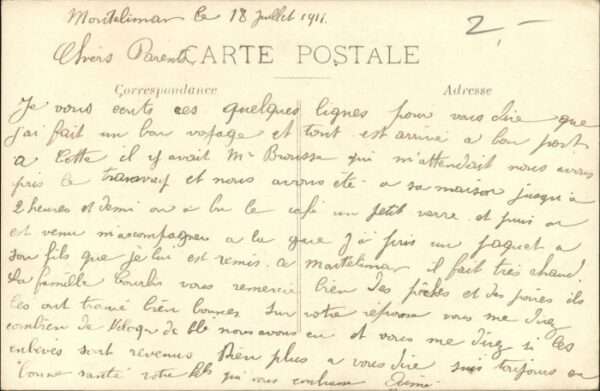 Montelimar le 18 Juillet 1911.
2,-
Chers Parents
CARTE POSTALE
Correspondance
Adresse
Je vous ecris ces quelques lignes pour vous dire que
j'ai fait un bon voyage et tout est arrivé a bon port
a Cette il y avait Mr Brousse qui m'attendait nous avons
pris le tranvay et nous avons été a sa maison jusqu'a
2 heures et demi on à bu le café un petit verre et puis on
est venu m'accompagner a la gare J'ai pris un paquet a
son fils que je lui est remis. a Montelimar il fait très chaud.
La famille vous remercie bien des pêches et des poires ils
les ont trouvé bien bonnes Sur votre réponse vous me direz
combien de de blé nous avons eu et vous me direz si les
sont revenus Rien plus a vous dire suis toujours en
bonne santé votre fils qui vous embrasse Aimé